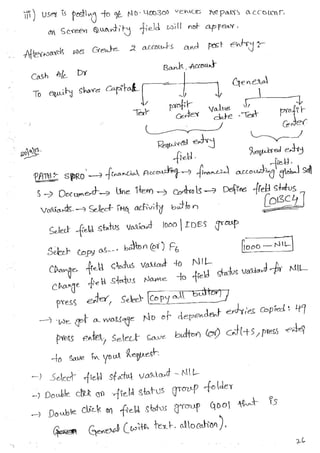 iii) User is posting to g/L No. 400300 vehicle Repairs account.
on Screen Quantity field will not appear.
Afterwards we Create 2 accounts and post entry:-
Cash A/c Dr
To equity share Capital
Bank Account
General
Text
profit Center
Value date
Text
profit Center
Required entry field.
Required entry field.
PATH:- SPRO → financial Accounting → financial accounting global Sett
s → Document → line Item → Controls → Define field status
Variants → Select IMG activity button
OBC4
Select field status variant 1000 | IDES group
Select copy as... button (or) F6
1000 — NIL
Change field status variant to NIL
Change field status Name to field status variant for NIL
press enter, Select Copy all button
→ we get a massage No of dependent entries Copied: 49
press enter, Select save button (or) Cntl+S, press enter
to save in your Request.
→ Select field status variant - NIL
→ Double click on field status group folder
→ Double click on field status group G001 that is
General (with text. allocation).
26